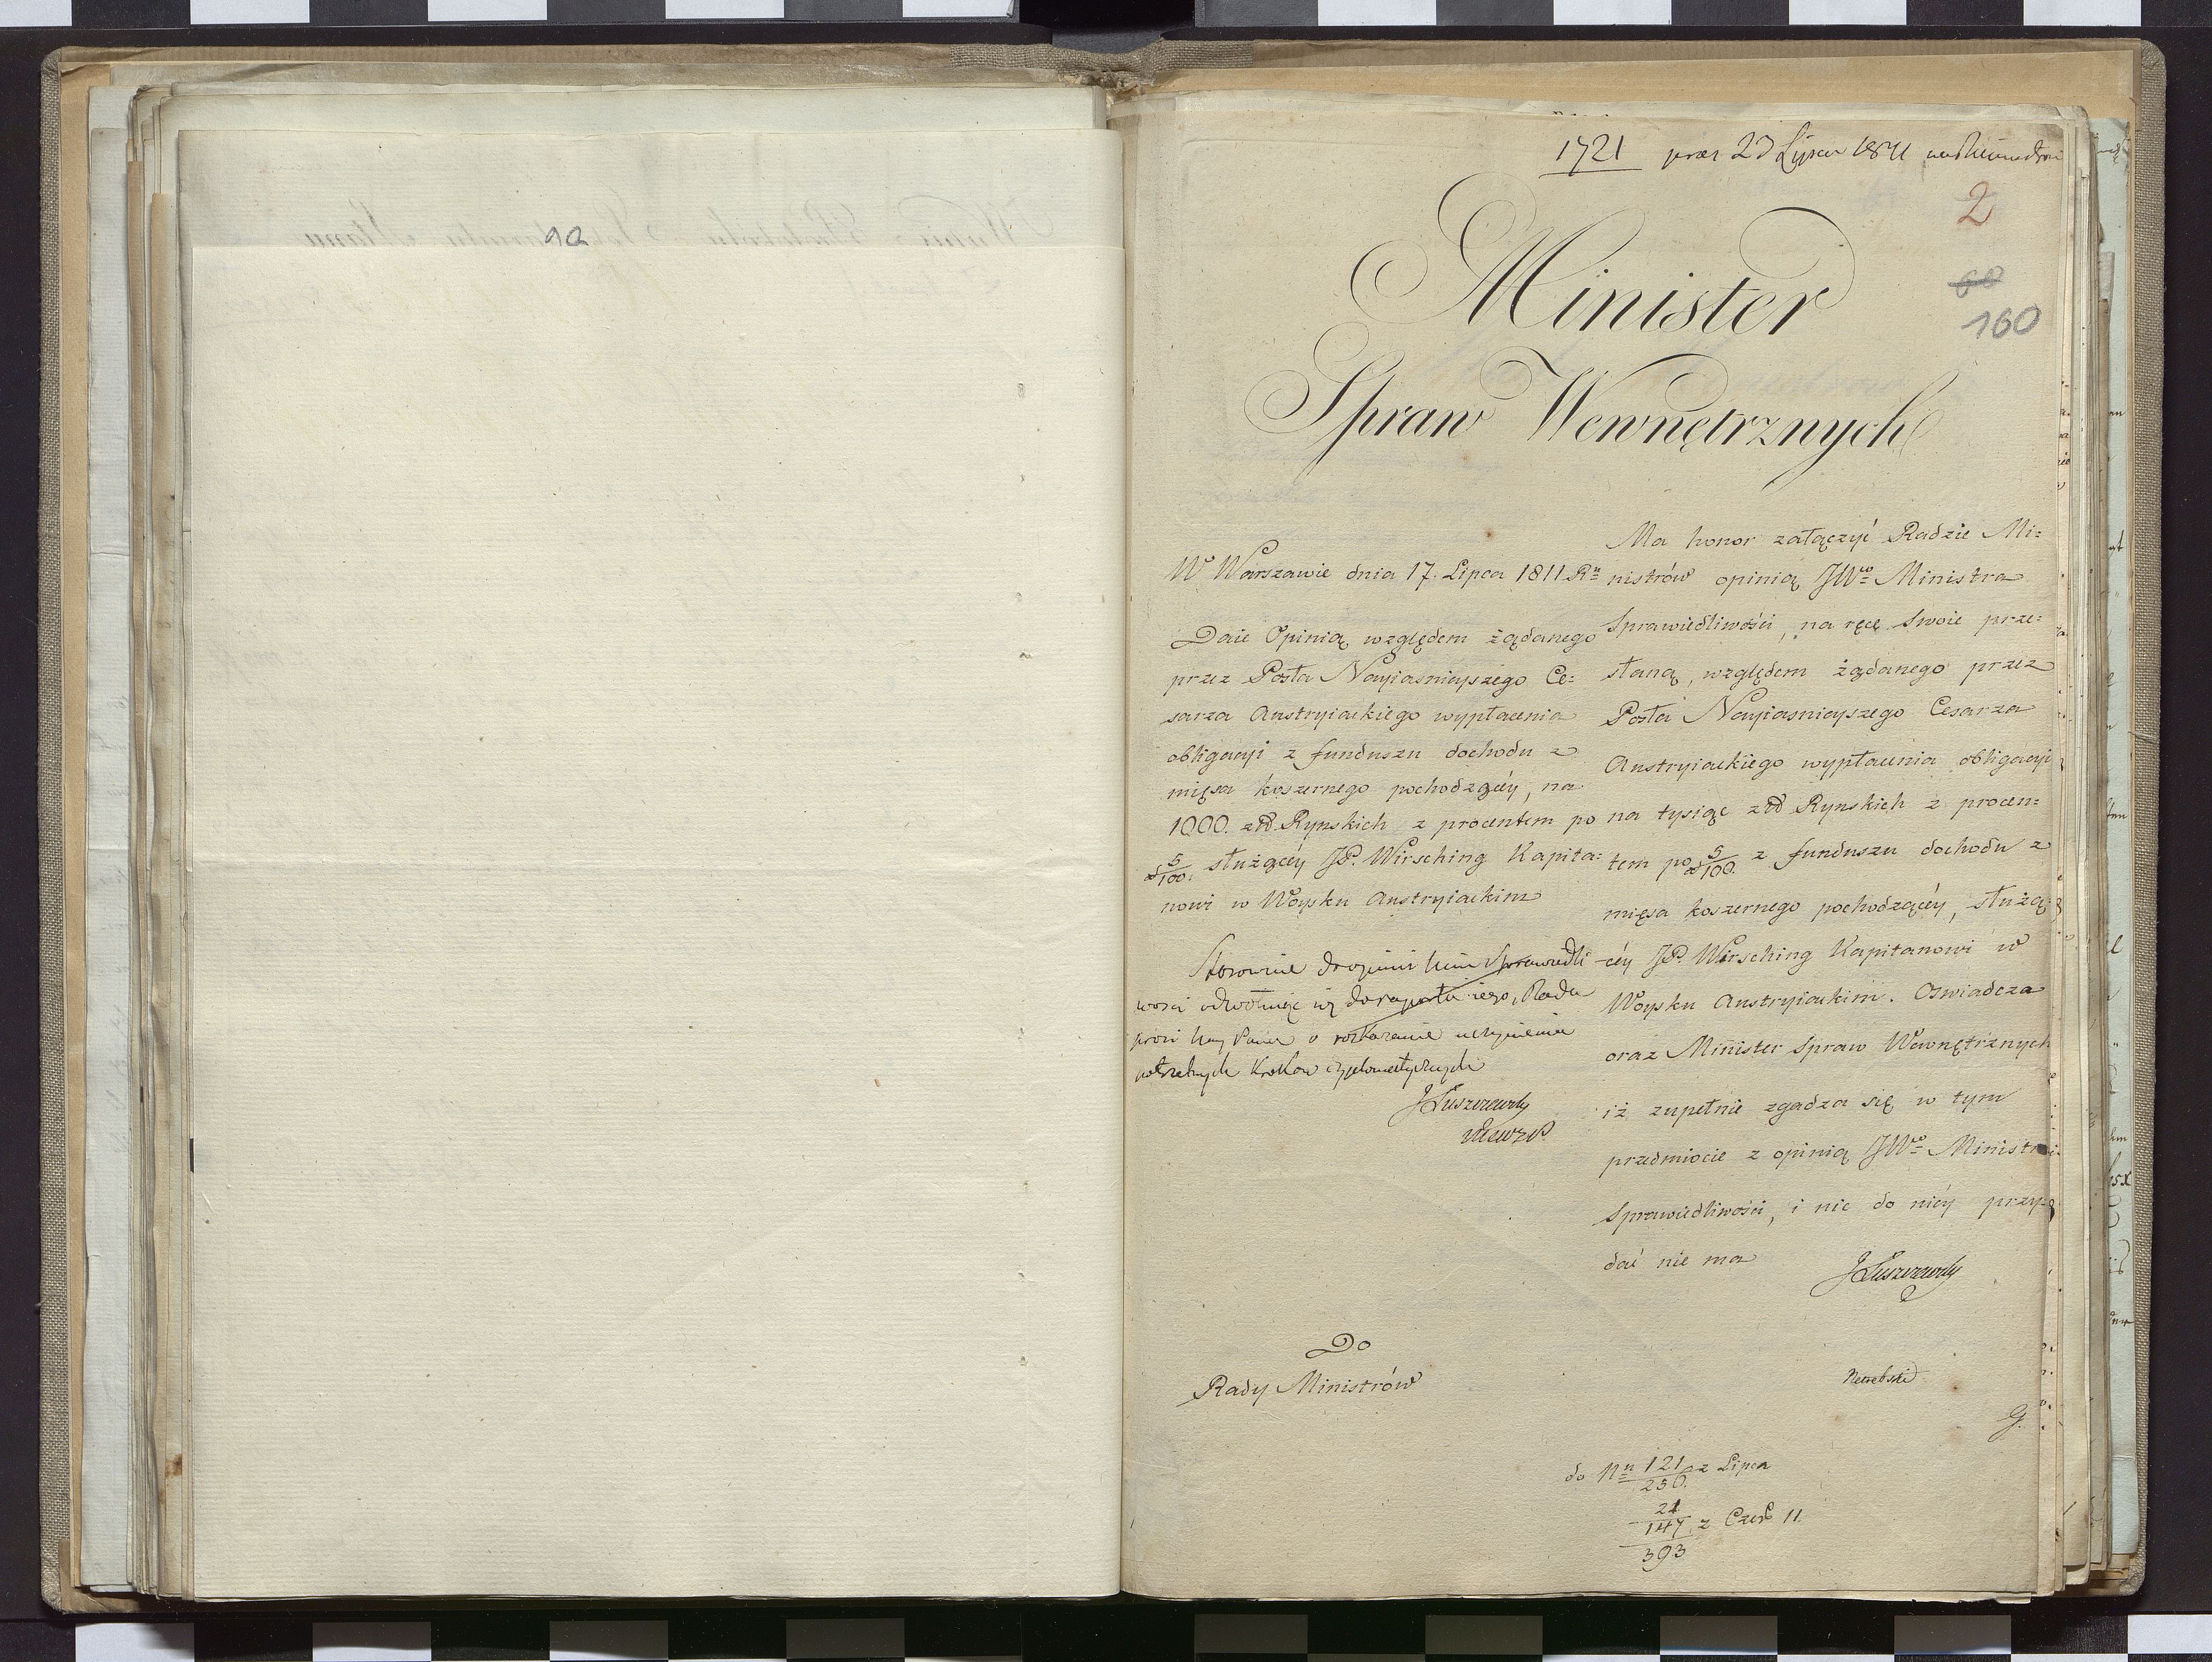 1721 prez 23 Lipca 1811
2
60
160
Minister
Spraw Wewnętrznych
W Warszawie dnia 17. Lipca 1811 Rⁿ
Daie Opinią względem żądanego
przez Posła Nayiasnieyszego Ce:
sarza Austryiackiego wypłacenia
obligacyi z funduszu dochodu z
mięsa koszernego pochodzącéy, na
1000. złł Rynskich z procentem po
5/100. służącéy JP. Wirsching Kapita:
nowi w Woysku Austryiackim
Stosownie do opinii Min Sprawiedli
wosci odwołuiąc się do raportu iego, Rada
prosi Nay Pana o rozkazanie uczynienia
potrzebnych krokow dyplomatycznych
JŁuszczewsky
Ma honor załączyć Radzie Mi:
nistrów opinią JWgo Ministra
Sprawiedliwości, na ręce swoie prze:
słaną, względem żądanego przez
Posła Nayiasnieyszego Cesarza
Austryiackiego wypłacenia obligacyi
na tysiąc złł Rynskich z procen:
tem po 5/100. z funduszu dochodu z
mięsa koszernego pochodzącéy, służą
céy JP. Wirsching Kapitanowi w
Woysku Austryiackim. Oswiadcza
oraz Minister Spraw Wewnętrznych
iż zupełnie zgadza się w tym
przedmiocie z opinią JWgo Ministra
Sprawiedliwości, i nic do niéy przy:
dać nie ma
JŁuszczewsky
Do
Rady Ministrów
G.
do Nⁿ 121/250. z Lipca
21/147 z Czer 11.
393